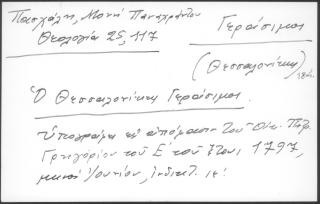 Πασχάλη, Μονή Παναχράντου
Θεολογία 25, 117
Γεράσιμος
(Θεσσαλονίκης)
Ὁ Θεσσαλονίκης Γεράσιμος.
ὑπογράφει εἰς ἀπόφασιν τοῦ Οἰκ. Πατρ.
Γρηγορίου τοῦ Ε΄ τοῦ ἔτους 1797,
μηνί Ἰουνίου, ἰνδικτ. ιε΄